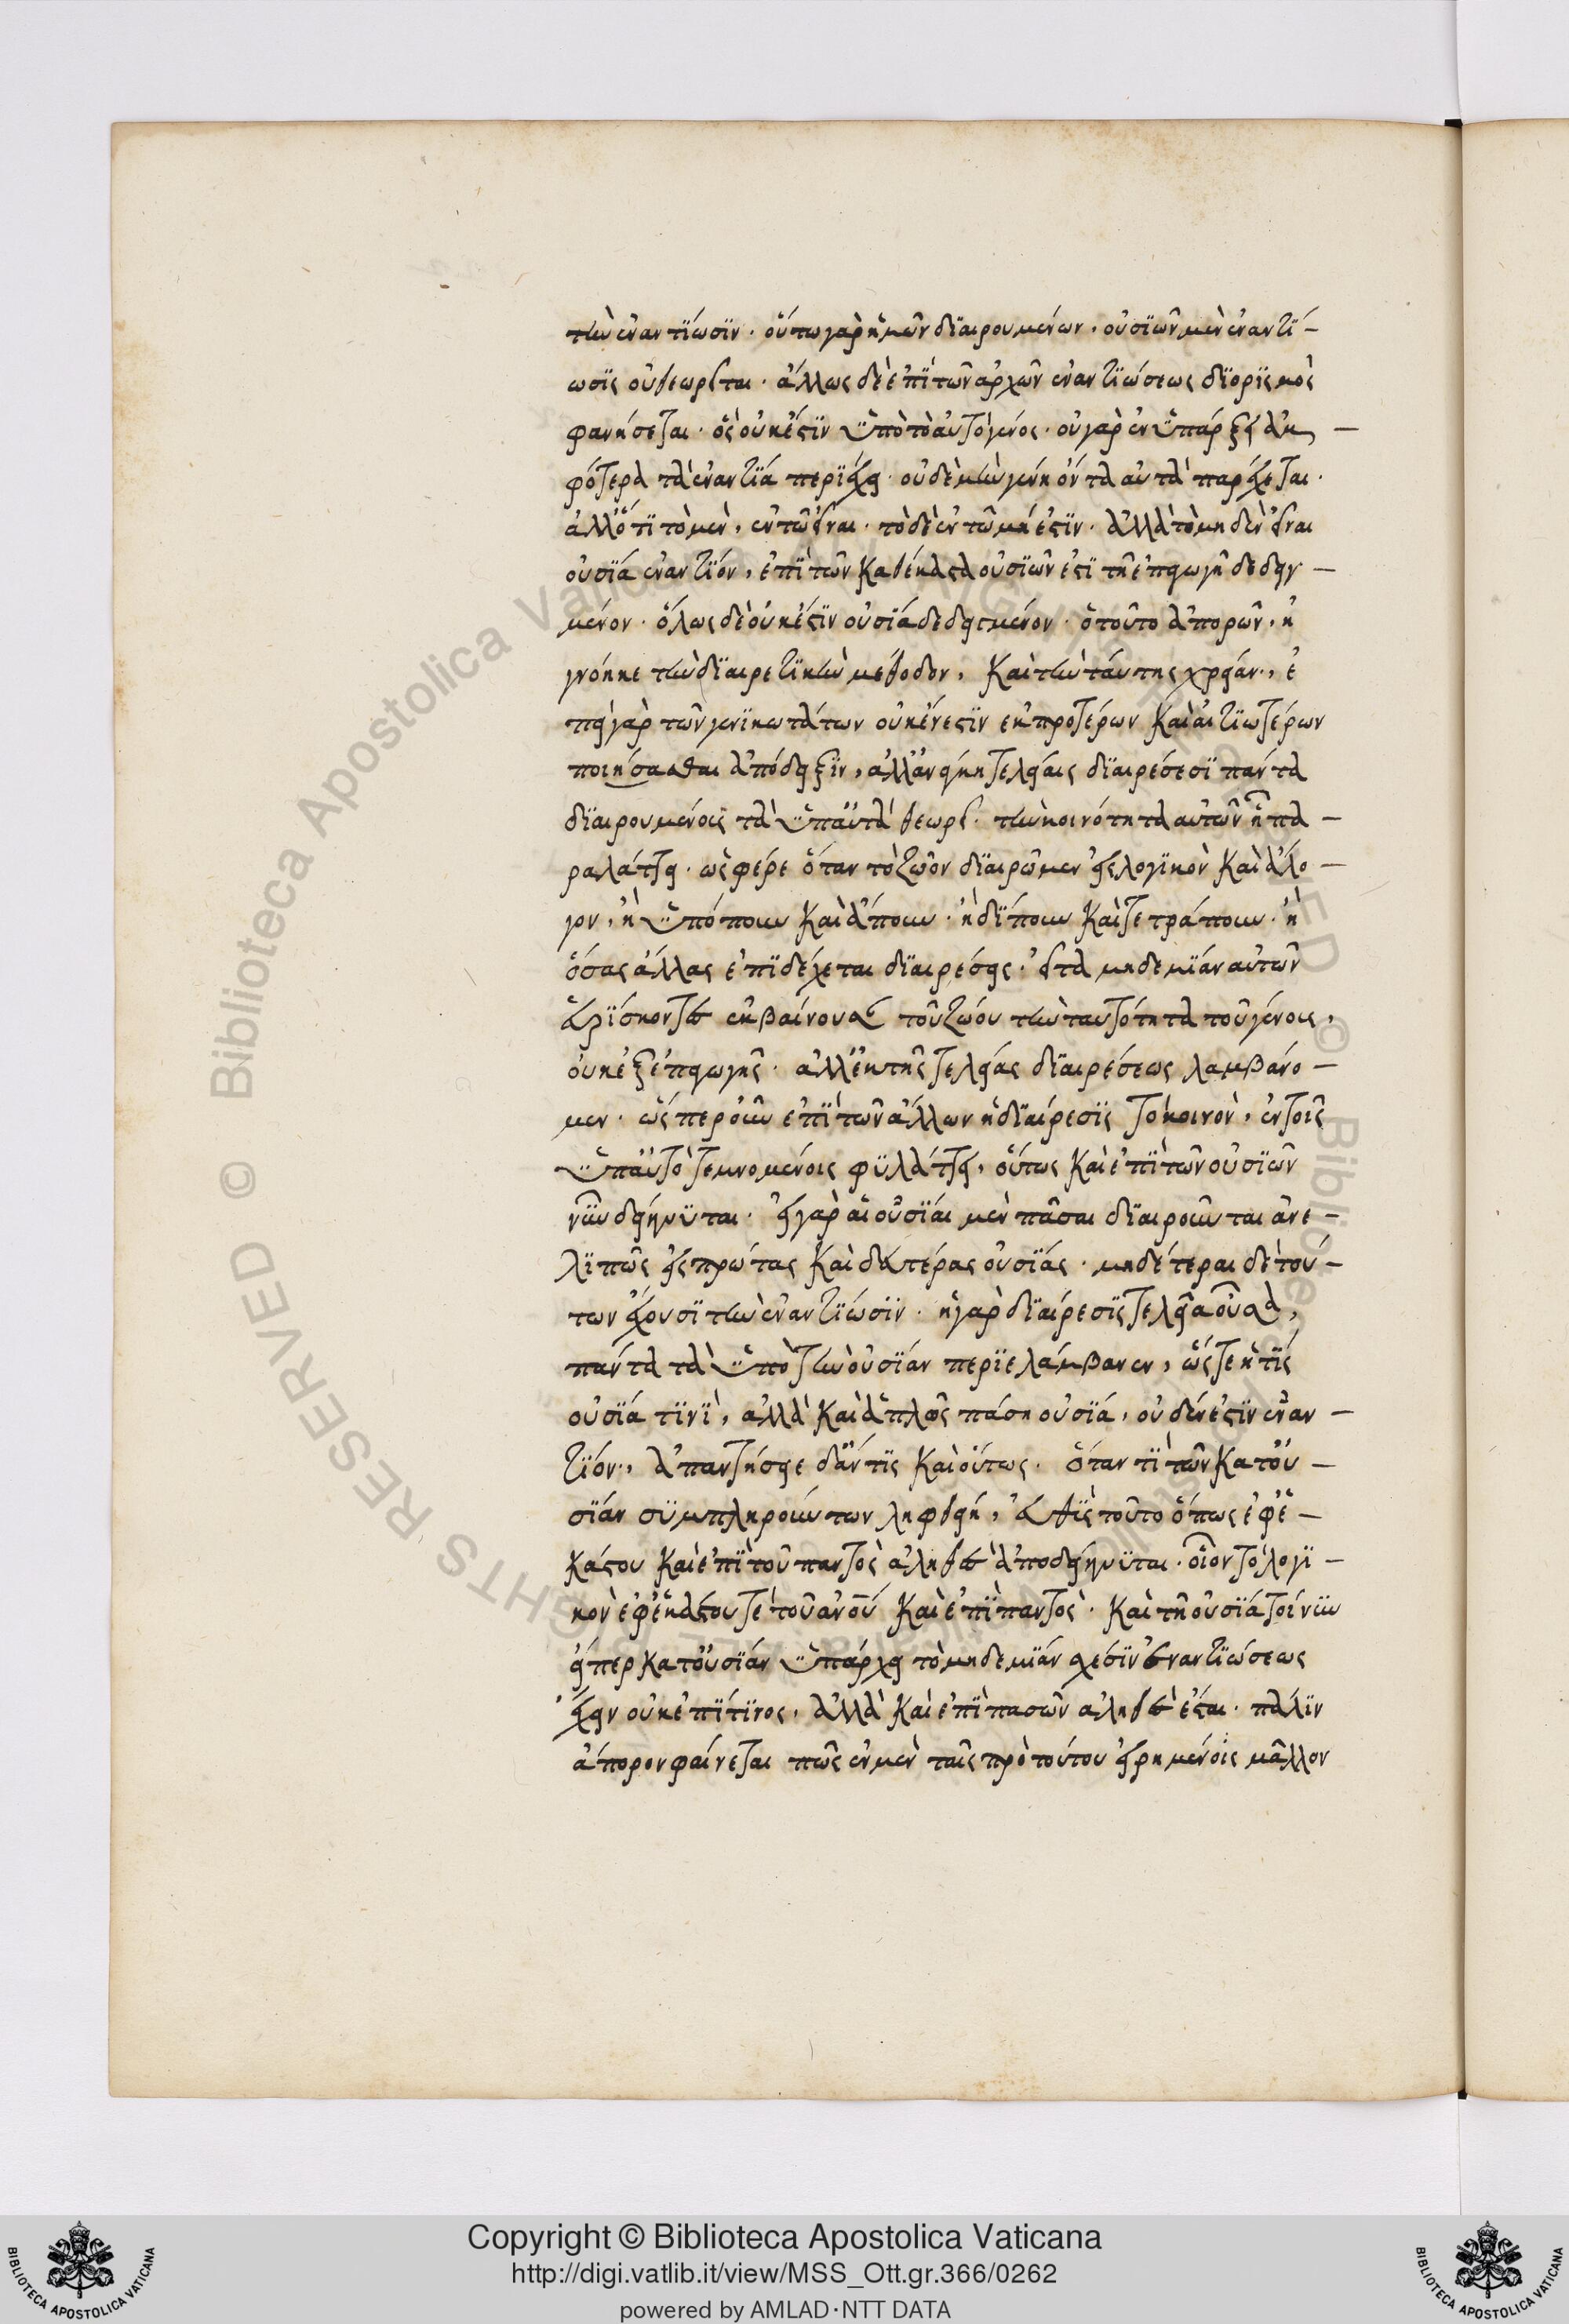 τὴν ἐναντίωσϊν · οὕτω γὰρ ἡμῶν δϊαιρουμένων, οὐσϊῶν μὲν ἐναντί-
ωσϊς οὐ θεωρεῖται · ἄλλως δὲ ἐπὶ τῶν ἀρχῶν ἐναντϊώσεως δϊορϊσμὸς
φανήσεται · ὃς οὐκ ἔστϊν ὑπὸ τὸ αὐτὸ γένος · οὐ γὰρ ἐν ὑπάρξει ἀμ-
φότερα τὰ ἐναντία περϊέχει · οὐδὲ μὴν γένη ὄντα αὐτὰ παρέχεται ·
ἀλλ' ὅτϊ τὸ μὲν, ἐν τῶ εἶναι · τὸ δὲ ἐν τῶ μή ἐστϊν · ἀλλὰ τὸ μηδὲν εἶναι
οὐσία ἐναντϊόν, ἐπὶ τῶν καθέκαστα οὐσϊῶν ἐστὶ τῆ ἐπαγωγῆ δεδειγ-
μένον · ὅλως δὲ οὐκ ἔστϊν οὐσία δεδειγμένον · ὁ τοῦτο ἀπορῶν, ἠ
γνόηκε τὴν δϊαιρετϊκὴν μέθοδον, καὶ τὴν ταύτης χρείαν, ἐ
πεὶ γὰρ τῶν γενϊκωτάτων οὐκ ἔνεστϊν ἐκ προτέρων καὶ αἰτϊωτέρων
ποιήσασθαι ἀπόδειξϊν, ἀλλ' ἀνάγκη τελείαις δϊαιρέσεσϊ πάντα
δϊαιρουμένοις τὰ ὑπ' αὐτὰ θεωρεῖν τὴν κοινότητα αὐτῶν ἢ πα-
ραλάττει · ὡς φέρε ὅταν τὸ ζῶον δϊαιρῶμεν εἰς λογϊκὸν καὶ ἄλο-
γον, ἢ ὑπόπουν καὶ ἄπουν · ἢ δίπουν καὶ τετράπουν · ἢ
ὅσας ἄλλας ἐπιδέχεται δϊαιρέσεις · εἶτα μηδεμίαν αὐτῶν
εὑρίσκοντες ἐκβαίνουσαν τοῦ ζώου τὴν ταυτότητα τοῦ γένους,
οὐκ ἐξ ἐπαγωγῆς · ἀλλ' ἐκ τῆς τελείας δϊαιρέσεως λαμβάνο-
μεν · ὥσπερ οὖν ἐπὶ τῶν ἄλλων ἡ δϊαίρεσϊς τὸ κοινὸν, ἐν τοῖς
ὑπ' αὐτὸ τεμνομένοις φϋλάττει, οὕτως καὶ ἐπὶ τῶν οὐσϊῶν
νῦν δείκνϋται · εἰ γὰρ αἱ οὐσίαι μὲν πᾶσαι δϊαιροῦνται ἀνε-
λϊπῶς εἰς πρώτας καὶ δευτέρας οὐσίας · μηδέτεραι δὲ τού-
των ἔχουσϊ τὴν ἐναντϊώσϊν · ἡ γὰρ δϊαίρεσϊς τελεία οὖσα,
πάντα τὰ ὑπὸ τὴν οὐσίαν περϊελάμβανεν, ὥστε ἤ τϊς
οὐσία τϊνὶ, ἀλλὰ καὶ ἁπλῶς πάση οὐσία, οὐδέν ἐστϊν ἐναν-
τϊόν, ἀπαντήσειε δ' ἄν τϊς καὶ οὕτως · ὅταν τὶ τῶν κατ' οὐ-
σίαν σϋμπληρούντων ληφθείη, εὐθὺς τοῦτο ὅπως ἐφ' ἑ-
κάστου καὶ ἐπὶ τοῦ παντὸς ἀληθὲς ἀποδείκνϋται · οἷον τὸ λογϊ-
κὸν ἐφ' ἑκάστου τὲ τοῦ ἀνου καὶ ἐπὶ παντὸς · καὶ τῆ οὐσία τοίνυν
εἴπερ κατ' οὐσίαν ὑπάρχει τὸ μηδεμίαν σχέσϊν ἐναντϊώσεως
ἔχειν οὐκ ἐπί τϊνος, ἀλλὰ καὶ ἐπὶ πασῶν ἀληθὲς ἔσται · πάλϊν
ἄπορον φαίνεται πῶς ἐν μὲν ταῖς πρὸ τούτου εἰρημένοις μᾶλλον
Copyright © Biblioteca Apostolica Vaticana
http://digi.vatlib.it/view/MSS_Ott.gr.366/0262
powered by AMLAD·NTT DATA